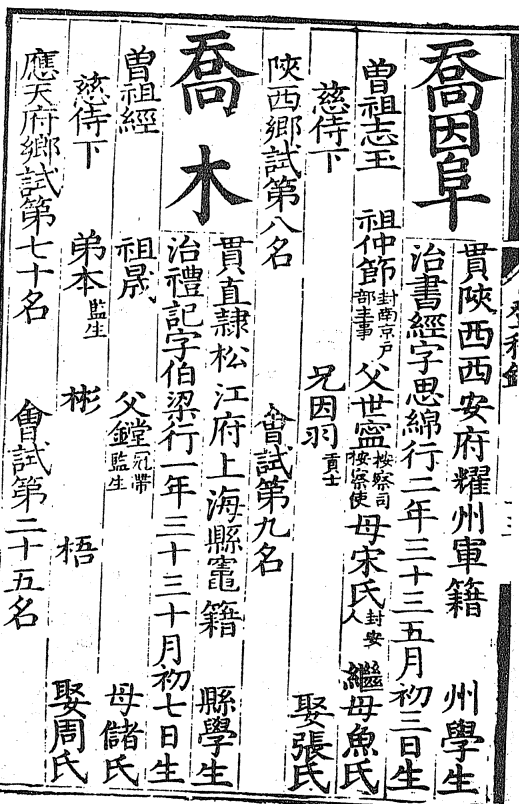 喬因阜
貫陝西西安府耀州軍籍 州學生
治書經字思綿行二年三十三五月初三日生
曾祖志玉 祖仲節封南京戶部主事 父世寧按察司按察使 母宋氏封安人 繼母魚氏
慈侍下 兄因羽貢士 娶張氏
陝西鄉試第八名 會試第九名
喬木
貫直隸松江府上海縣竈籍 縣學生
治禮記字伯梁行一年三十三十月初七日生
曾祖經 祖晟 父鏜冠帶監生 母儲氏
慈侍下 弟本監生 彬 梧 娶周氏
應天府鄉試第七十名 會試第二十五名